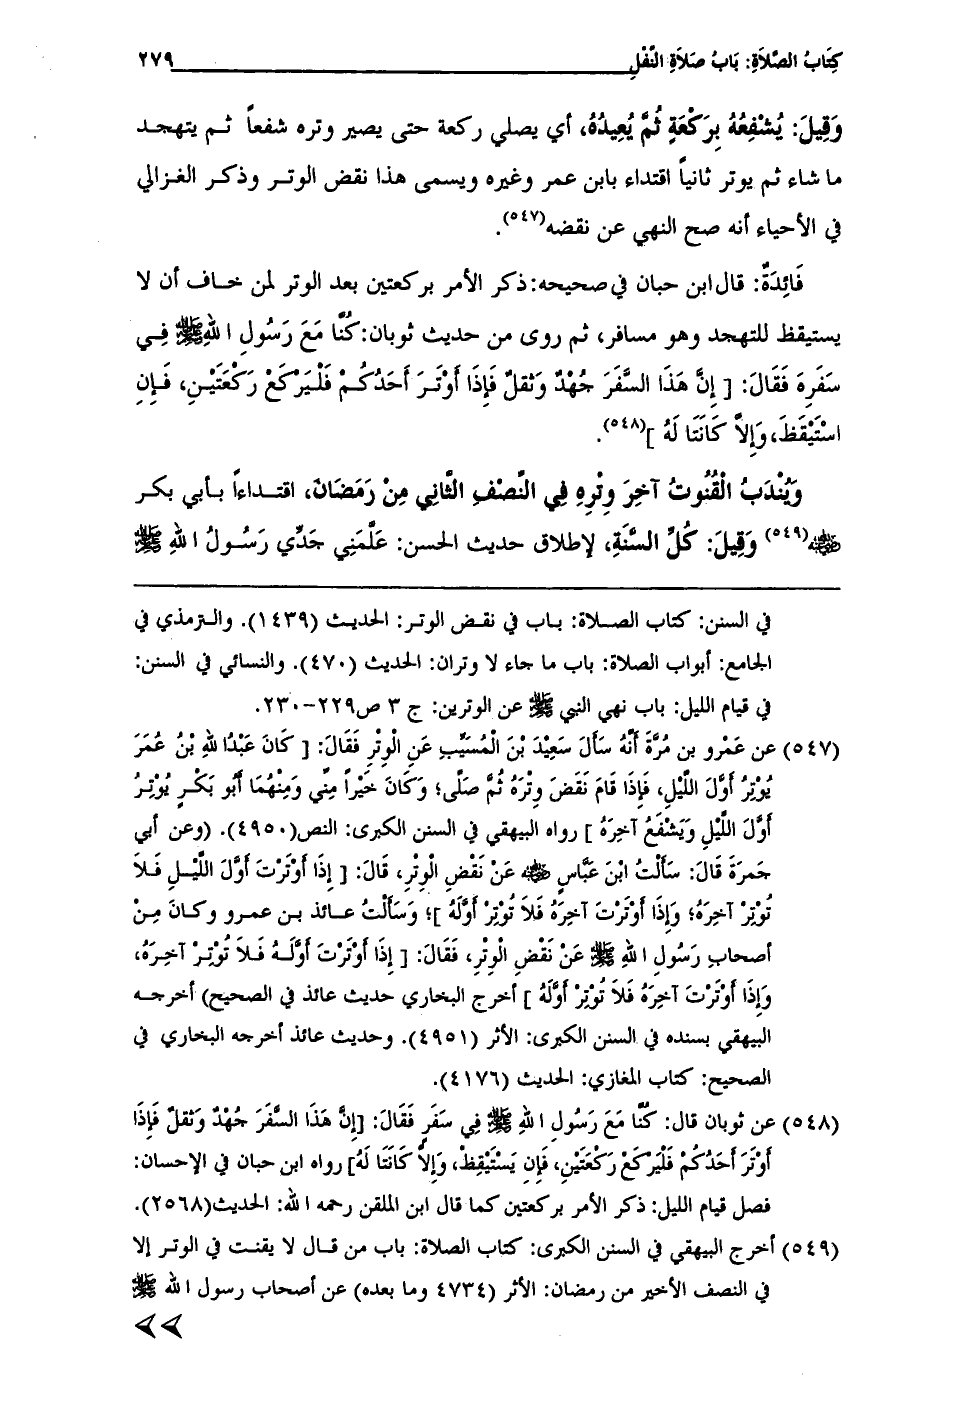 كِتَابُ الصَّلاَةِ: بَابُ صَلاَةِ النَّفْلِ ٢٧٩
وَقِيلَ: يُشْفِعُهُ بِرَكْعَةٍ ثُمَّ يُعِيدُهُ، أي يصلي ركعة حتى يصير وتره شفعاً ثم يتهجد
ما شاء ثم يوتر ثانياً اقتداء بابن عمر وغيره ويسمى هذا نقض الوتر وذكر الغزالي
في الأحياء أنه صح النهي عن نقضه(٥٤٧).
فَائِدَةٌ: قال ابن حبان في صحيحه: ذكر الأمر بركعتين بعد الوتر لمن خاف أن لا
يستيقظ للتهجد وهو مسافر، ثم روى من حديث ثوبان: كُنَّا مَعَ رَسُولِ اللهِ ﷺ فِي
سَفَرِهِ فَقَالَ: [ إِنَّ هَذَا السَّفَرَ جُهْدٌ وَثقلٌ فَإِذَا أَوْتَرَ أَحَدُكُمْ فَلْيَرْكَعْ رَكْعَتَيْنِ، فَإِنِ
اسْتَيْقَظَ، وَإِلاَّ كَانَتَا لَهُ ](٥٤٨).
وَيُنْدَبُ الْقُنُوتُ آخِرَ وِتْرِهِ فِي النِّصْفِ الثَّانِي مِنْ رَمَضَانَ، اقتداءاً بأبي بكر
رضي الله عنه(٥٤٩) وَقِيلَ: كُلِّ السَّنَةِ، لإطلاق حديث الحسن: عَلَّمَنِي جَدِّي رَسُولُ اللهِ ﷺ
في السنن: كتاب الصلاة: باب في نقض الوتر: الحديث (١٤٣٩). والترمذي في
الجامع: أبواب الصلاة: باب ما جاء لا وتران: الحديث (٤٧٠). والنسائي في السنن:
في قيام الليل: باب نهي النبي ﷺ عن الوترين: ج ٣ ص٢٢٩-٢٣٠.
(٥٤٧) عن عَمْرو بن مُرَّةَ أَنَّهُ سَأَلَ سَعِيْدَ بْنَ الْمُسَيَّبِ عَنِ الْوِتْرِ فَقَالَ: [ كَانَ عَبْدُ اللهِ بْنُ عُمَرَ
يُوْتِرُ أَوَّلَ اللَّيْلِ، فَإِذَا قَامَ نَقَضَ وِتْرَهُ ثُمَّ صَلَّى؛ وَكَانَ خَيْراً مِنِّي وَمِنْهُمَا أَبُو بَكْرٍ يُوْتِرُ
أَوَّلَ اللَّيْلِ وَيَشْفَعُ آخِرَهُ ] رواه البيهقي في السنن الكبرى: النص(٤٩٥٠). (وعن أبي
جَمرَةَ قَالَ: سَأَلْتُ ابْنَ عَبَّاسٍ رضي الله عنه عَنْ نَقْضِ الْوِتْرِ، قَالَ: [ إِذَا أَوْتَرْتَ أَوَّلَ اللَّيْلِ فَلاَ
تُوْتِرْ آخِرَهُ؛ وَإِذَا أَوْتَرْتَ آخِرَهُ فَلاَ تُوْتِرْ أَوَّلَهُ ]؛ وَسَأَلْتُ عائذ بن عمرو وكَانَ مِنْ
أصحابِ رَسُولِ اللهِ ﷺ عَنْ نَقْضِ الْوِتْرِ، فَقَالَ: [ إِذَا أَوْتَرْتَ أَوَّلَهُ فَلاَ تُوْتِرْ آخِرَهُ،
وَإِذَا أَوْتَرْتَ آخِرَهُ فَلاَ تُوْتِرْ أَوَّلَهُ ] أخرج البخاري حديث عائذ في الصحيح) أخرجه
البيهقي بسنده في السنن الكبرى: الأثر (٤٩٥١). وحديث عائذ أخرجه البخاري في
الصحيح: كتاب المغازي: الحديث (٤١٧٦).
(٥٤٨) عن ثوبان قال: كُنَّا مَعَ رَسُولِ اللهِ ﷺ فِي سَفَرٍ فَقَالَ: [إِنَّ هَذَا السَّفَرَ جُهْدٌ وَثقلٌ فَإِذَا
أَوْتَرَ أَحَدُكُمْ فَلْيَرْكَعْ رَكْعَتَيْنِ، فَإِن يَسْتَيْقِظْ، وَإِلاَّ كَانَتَا لَهُ] رواه ابن حبان في الإحسان:
فصل قيام الليل: ذكر الأمر بركعتين كما قال ابن الملقن رحمه الله: الحديث(٢٥٦٨).
(٥٤٩) أخرج البيهقي في السنن الكبرى: كتاب الصلاة: باب من قال لا يقنت في الوتر إلا
في النصف الأخير من رمضان: الأثر (٤٧٣٤ وما بعده) عن أصحاب رسول الله ﷺ